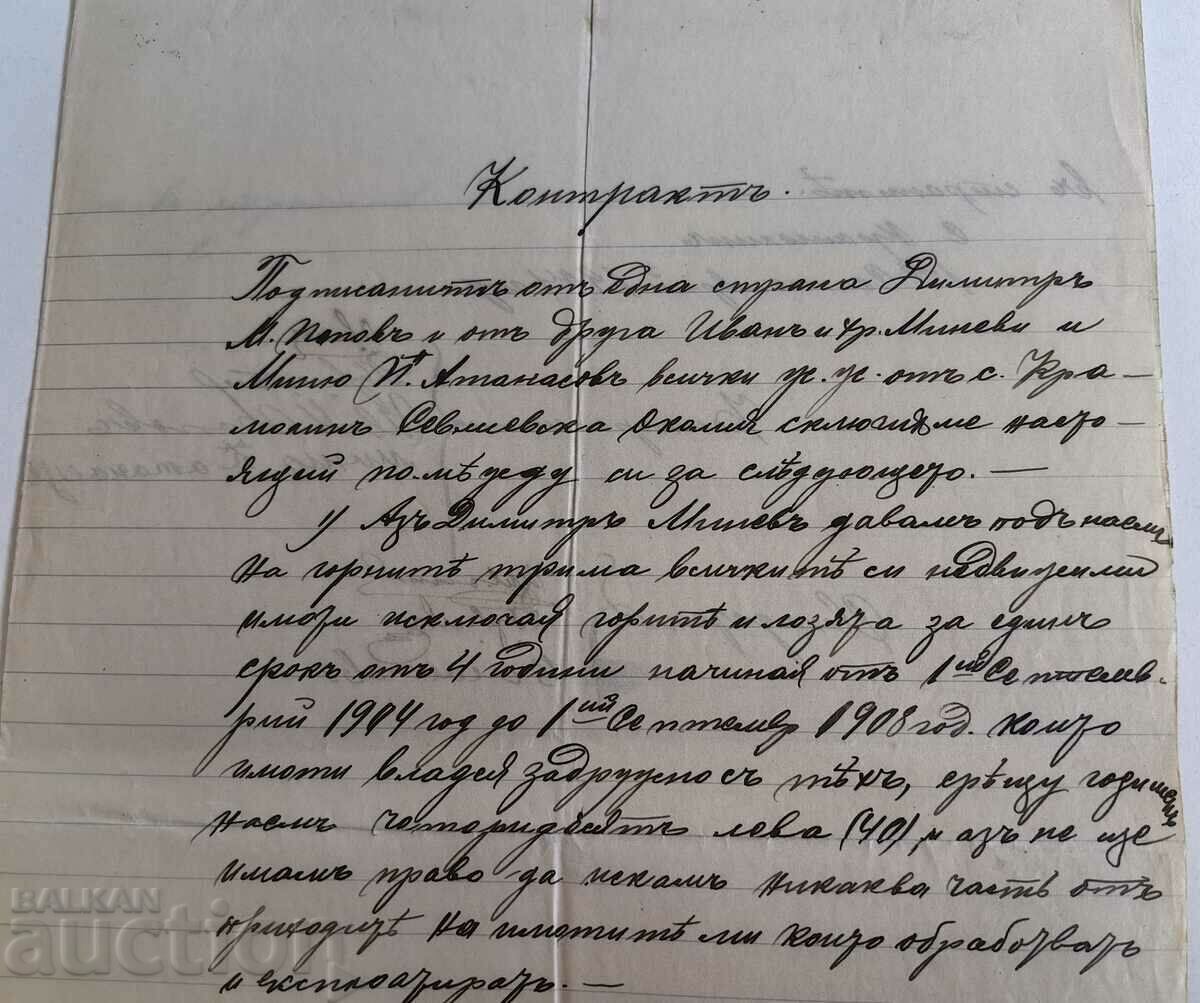 Контрактъ.
Подписанитъ отъ една страна Димитръ
М. Поповъ и отъ друга Иванъ и Хр. Миневи и
Миню П. Атанасовъ всички ж. ж. отъ с. Кра-
молинъ Севлиевска Околия сключихме насто-
ящий помѣжду си за слѣдующето. —
1) Азъ Димитръ Миневъ давамъ подъ наемъ
на горнитѣ трима всичкитѣ си недвижими
имоти исключая горитѣ и лозята за единъ
срокъ отъ 4 години начиная отъ 1ий Септем-
врий 1904 год до 1ий Септемвр 1908 год. които
имоти владея задружно съ тѣхъ, срѣщу годишенъ
наемъ четиридесятъ лева (40), и азъ не ще
имамъ право да искамъ никаква часть отъ
приходитѣ на имотитѣ ми които обработватъ
и експлоатиратъ. —
BALKAN
auction